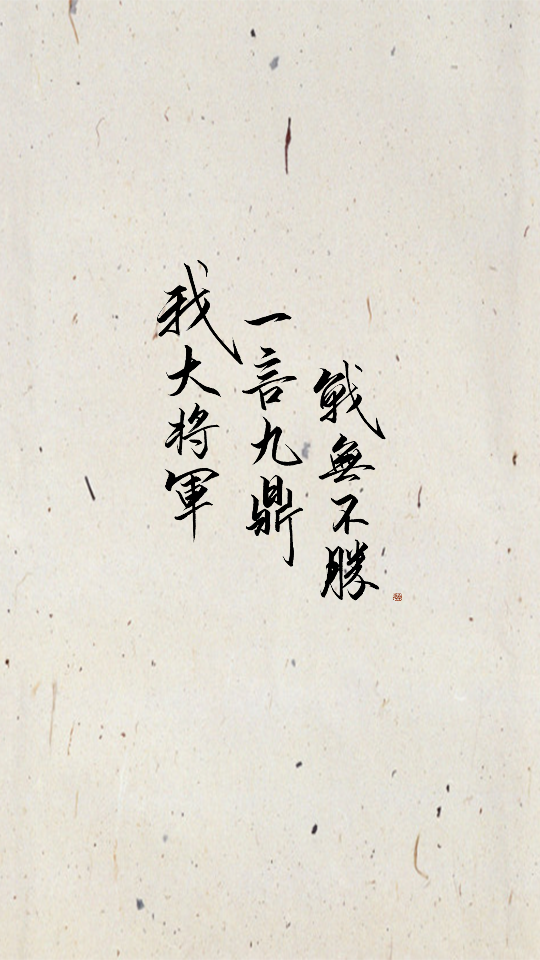 我大将軍
一言九鼎
戰無不勝